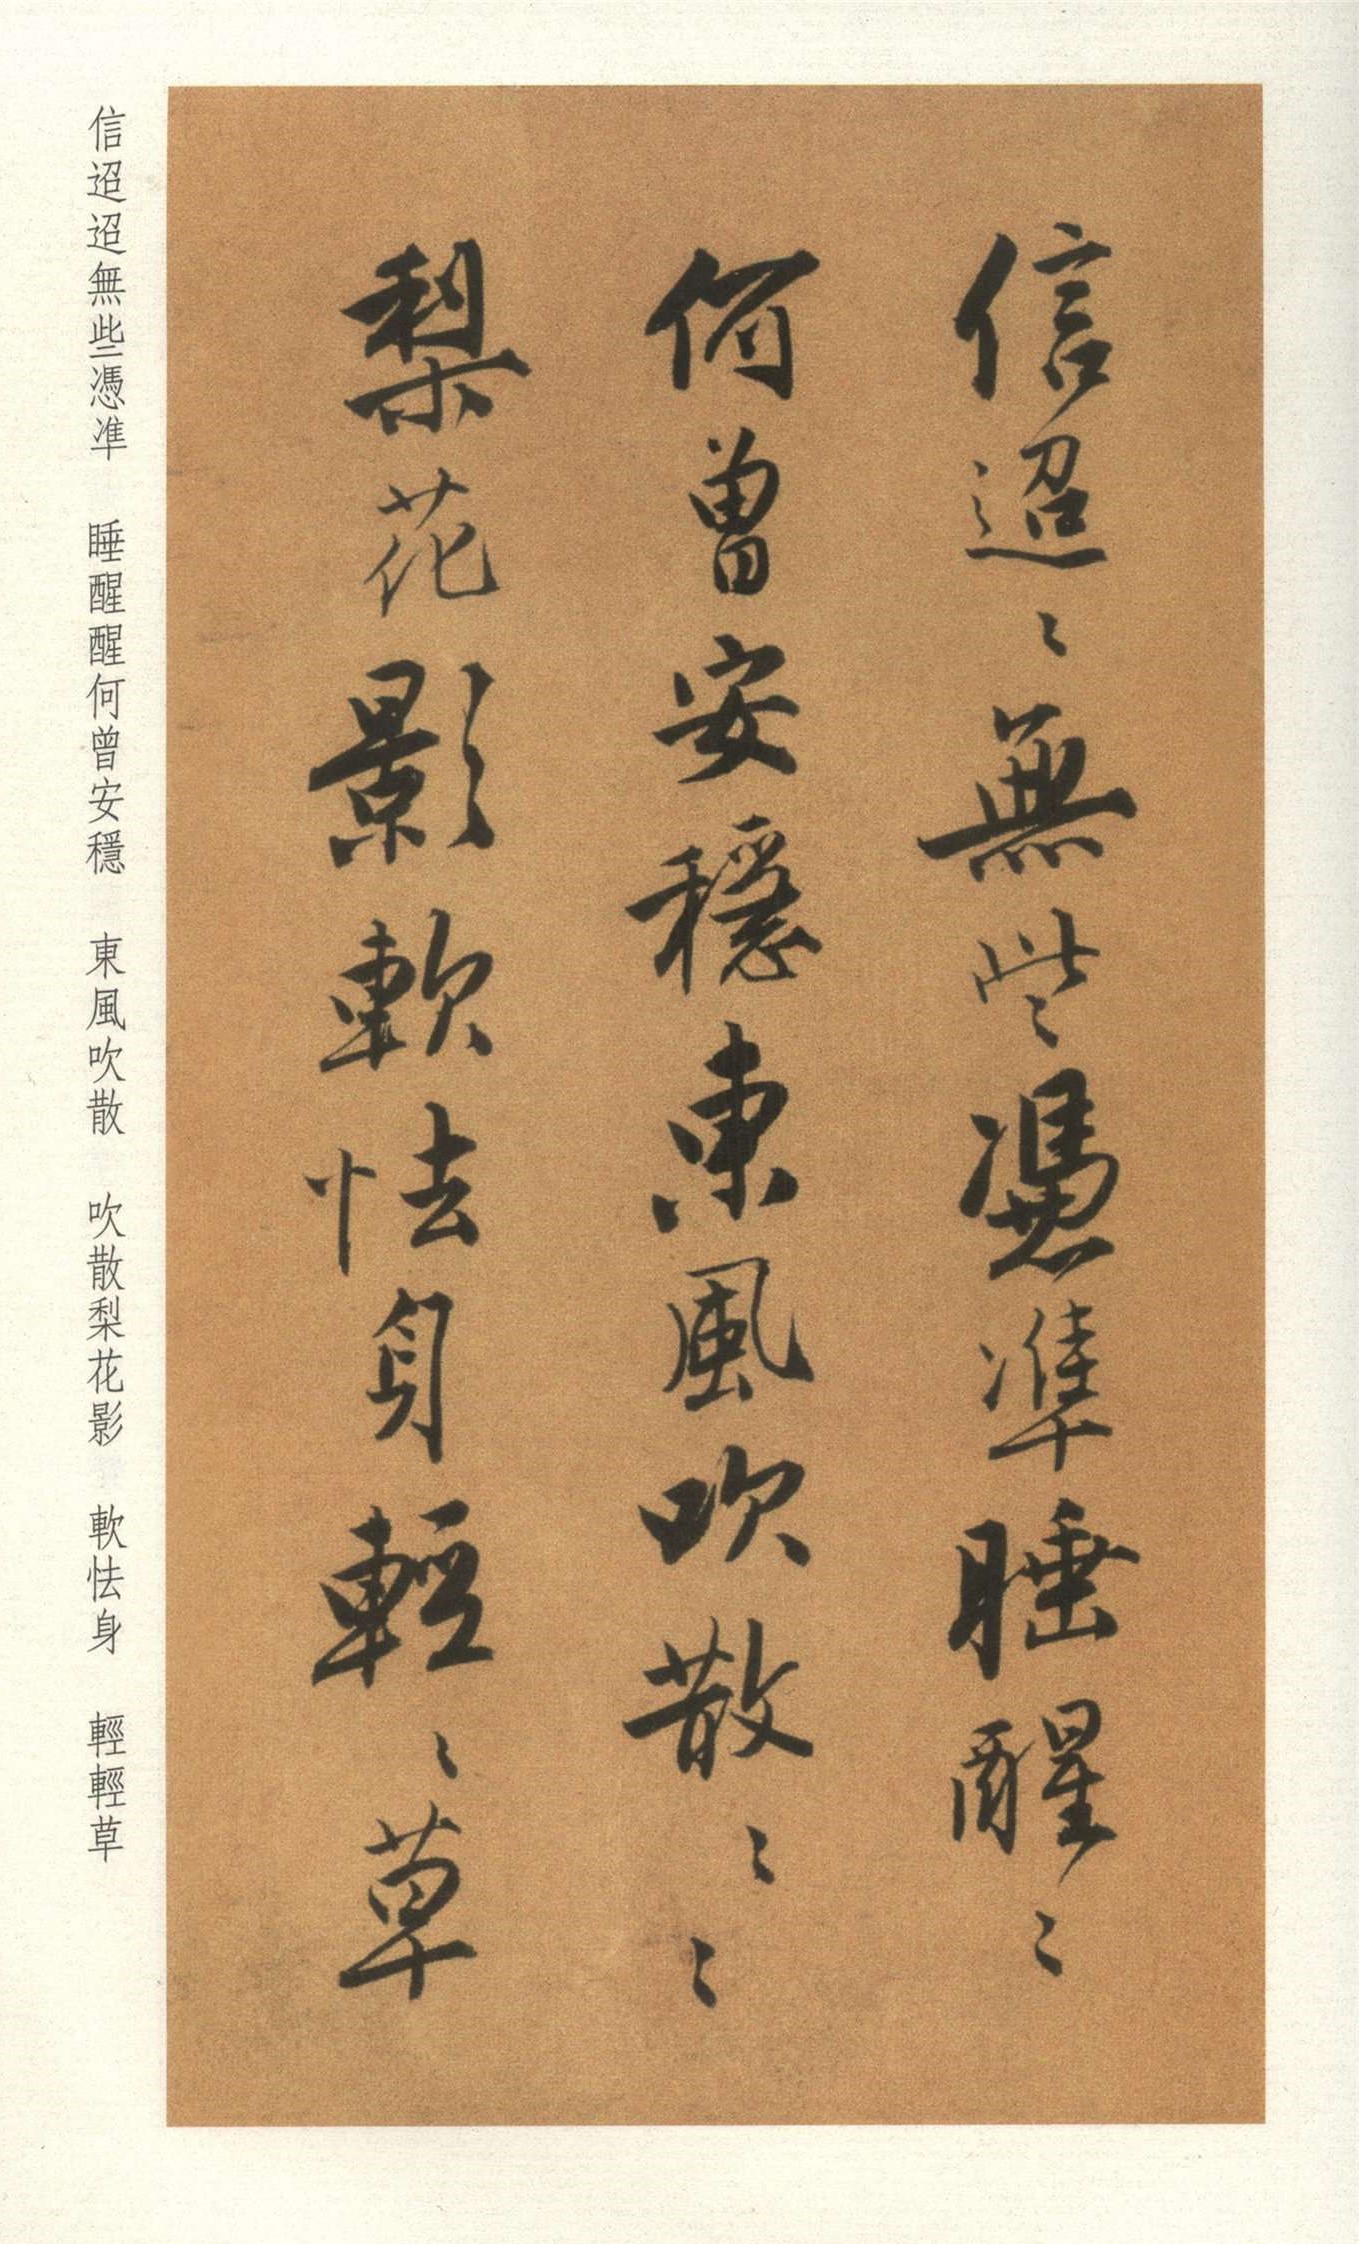 信迢〻無些憑準睡醒〻
何曾安穩東風吹散〻〻
梨花影軟怯身輕〻草
信迢迢無些憑準　睡醒醒何曾安穩　東風吹散　吹散梨花影　軟怯身　輕輕草